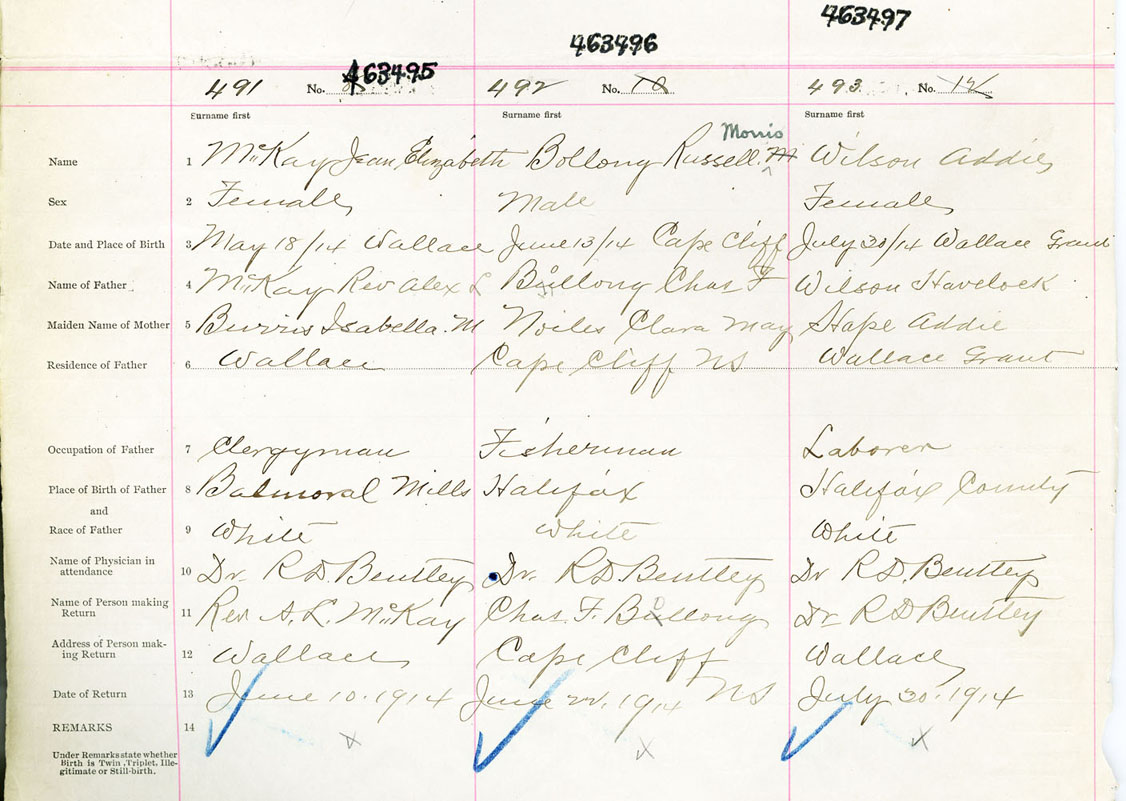 463497
463496
463495
491 No. 492 No. 10 493 No. 12
Surname first Surname first Surname first
Morris
Name 1 McKay Jean Elizabeth Bollong Russell. M Wilson Addie
Sex 2 Female Male Female
Date and Place of Birth 3 May 18/14 Wallace June 13/14 Cape Cliff July 30/14 Wallace Grant
Name of Father 4 McKay Rev Alex L Bollong Chas F Wilson Havelock
Maiden Name of Mother 5 Burris Isabella. M Noiles Clara May Hape Addie
Residence of Father 6 Wallace Cape Cliff NS Wallace Grant
Occupation of Father 7 Clergyman Fisherman Laborer
Place of Birth of Father 8 Balmoral Mills Halifax Halifax County
and
Race of Father 9 White White White
Name of Physician in
attendance 10 Dr. R.D. Bentley Dr. R.D. Bentley Dr R.D. Bentley
Name of Person making
Return 11 Rev. A. L. McKay Chas. F. Bollong Dr R D Bentley
Address of Person mak-
ing Return 12 Wallace Cape Cliff Wallace
Date of Return 13 June 10. 1914 June 22, 1914 NS July 30. 1914
REMARKS 14 x x x
Under Remarks state whether
Birth is Twin, Triplet, Ille-
gitimate or Still-birth.